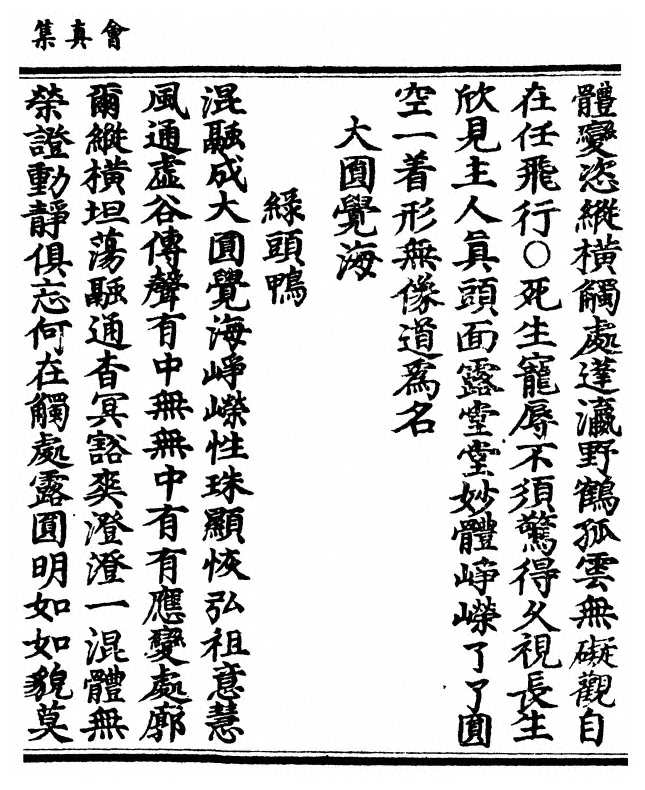 會真集
體變恣縱橫觸處蓬瀛野鶴孤雲無礙觀自
在任飛行○死生寵辱不須驚得久視長生
欣見主人真頭面露堂堂妙體崢嶸了了圓
空一着形無像道為名
大圓覺海
綠頭鴨
混融成大圓覺海崢嶸性珠顯恢弘祖意慧
風通虛谷傳聲有中無無中有有應變處廓
爾縱橫坦蕩融通杳冥豁爽澄澄一混體無
榮證動靜俱忘何在觸處露圓明如如貌莫